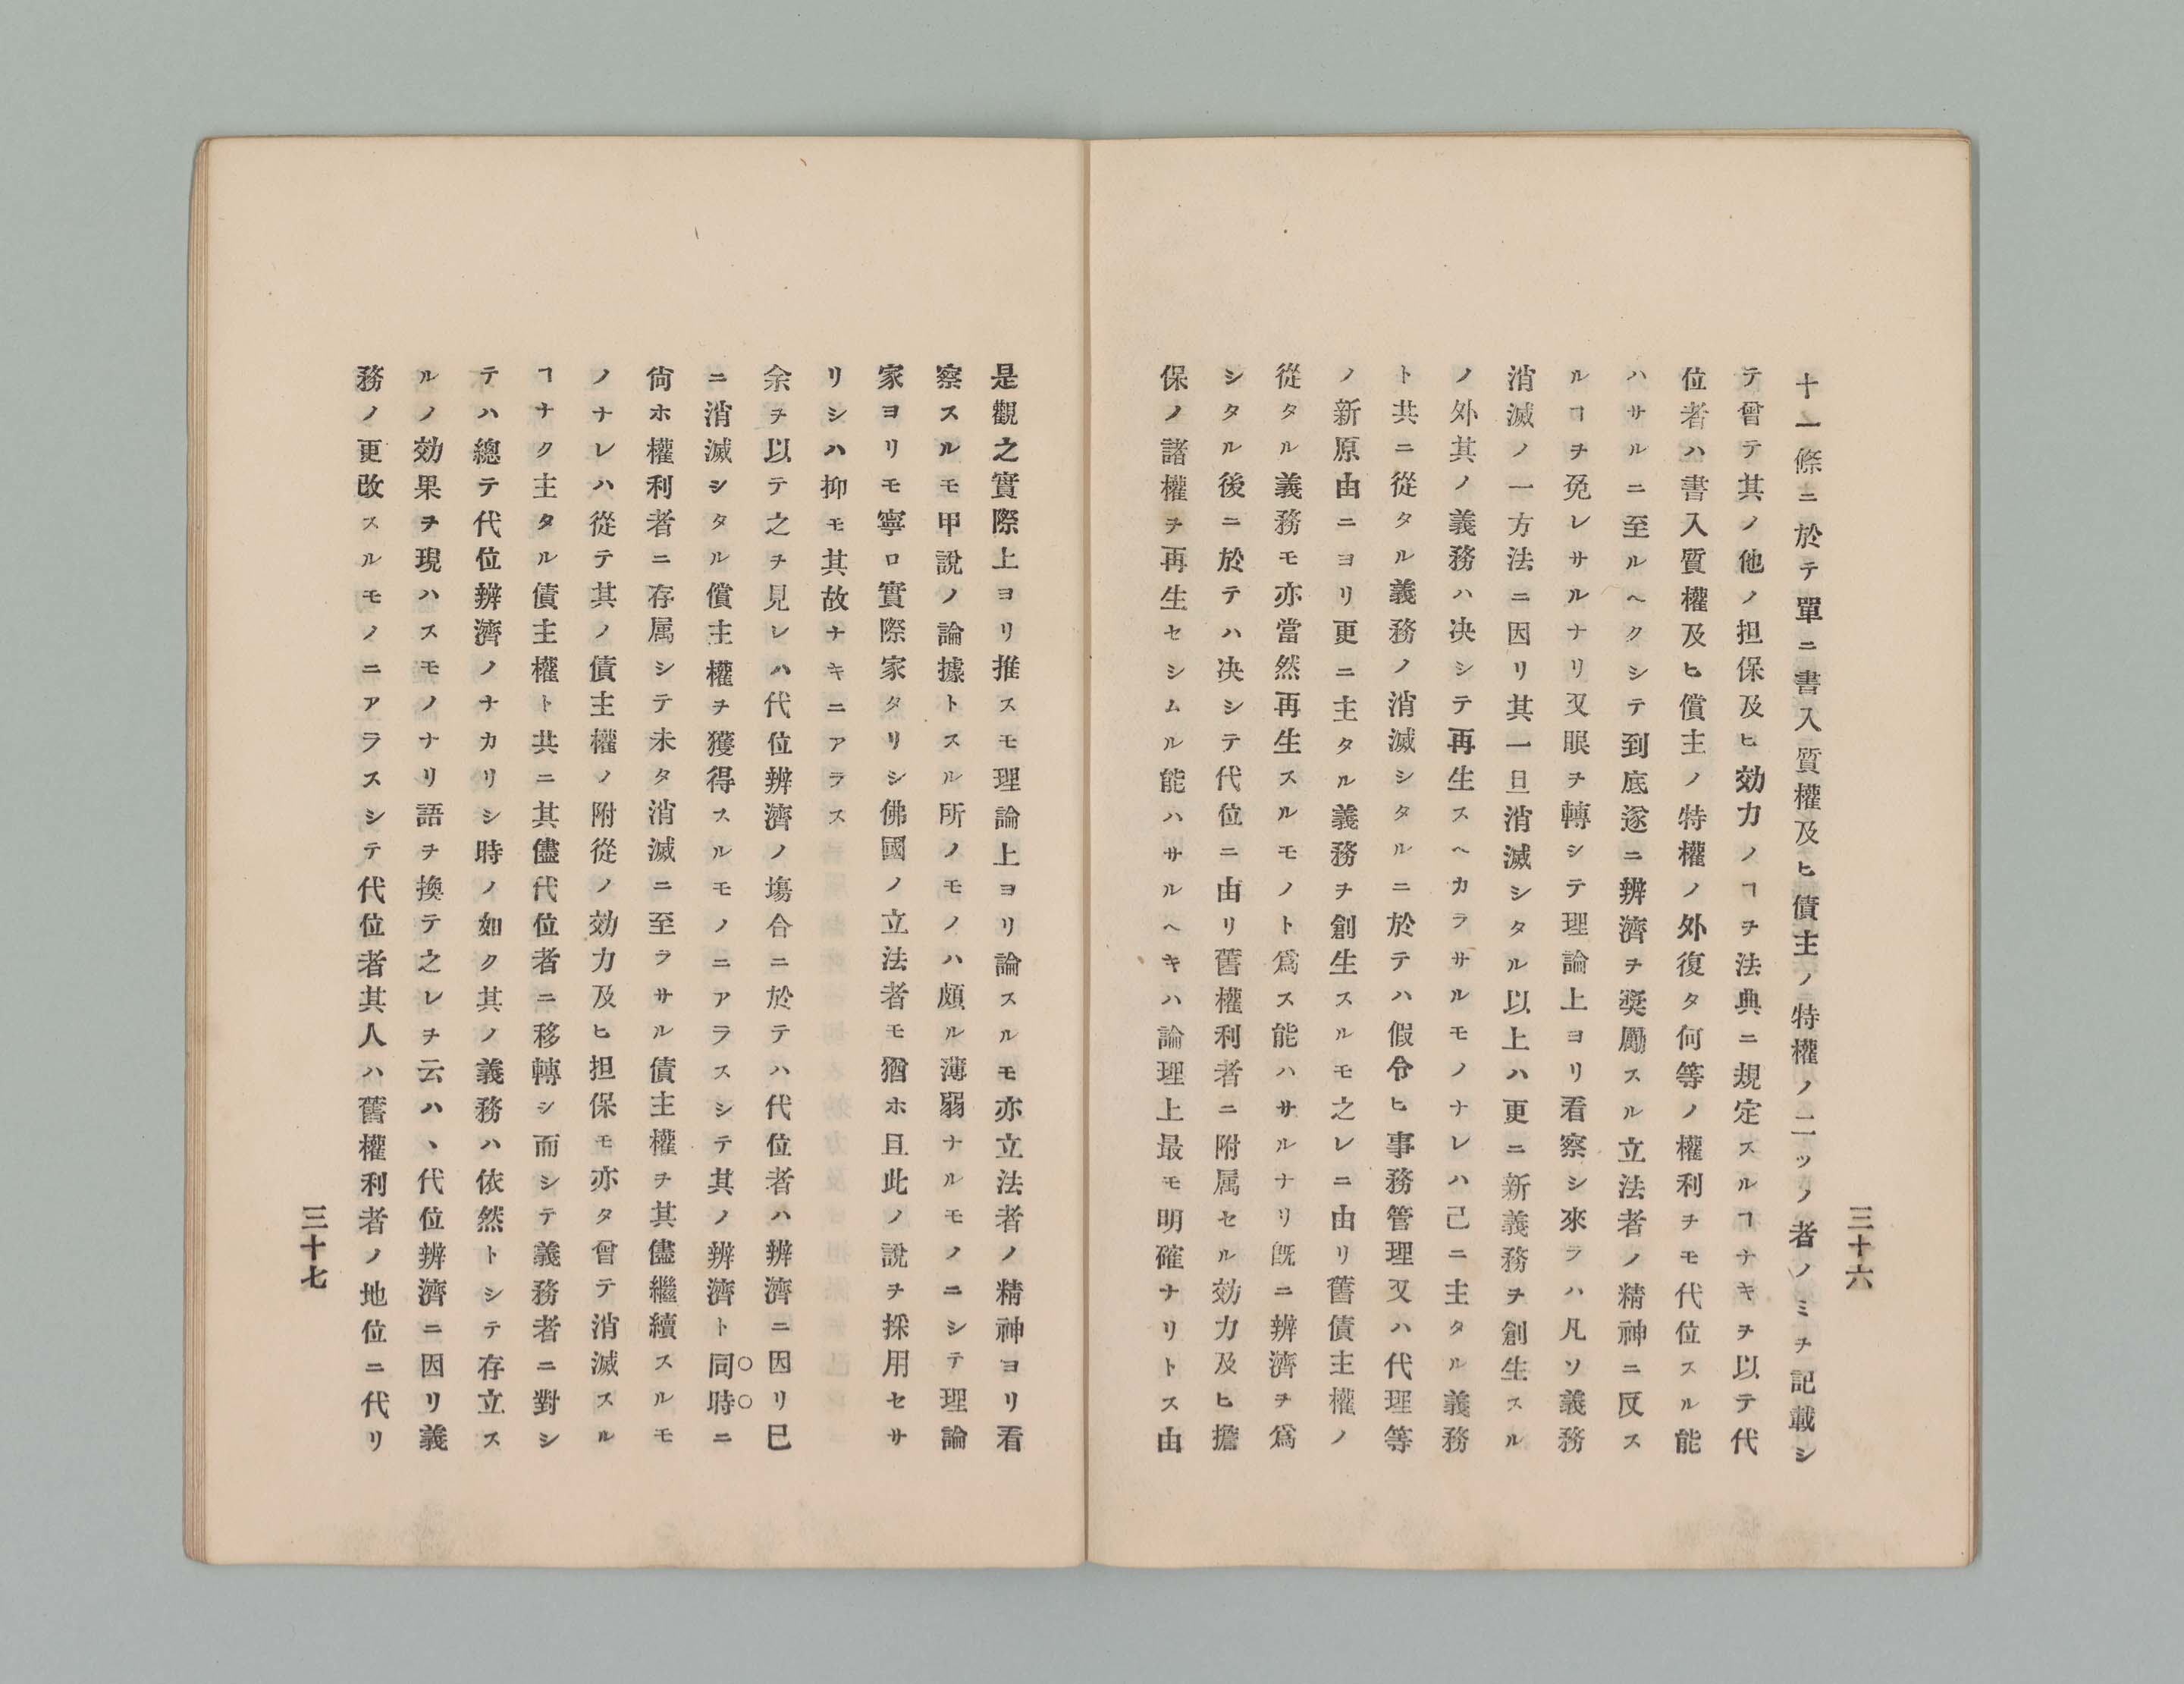 三十六
十一條ニ於テ單ニ書入質權及ヒ債主ノ特權ノ二ツノ者ノミヲ記載シ
テ曾テ其ノ他ノ担保及ヒ効力ノヿヲ法典ニ規定スルヿナキヲ以テ代
位者ハ書入質權及ヒ償主ノ特權ノ外復タ何等ノ權利ヲモ代位スル能
ハサルニ至ルヘクシテ到底遂ニ辨濟ヲ奬勵スル立法者ノ精神ニ反ス
ルヿヲ免レサルナリ又眼ヲ轉シテ理論上ヨリ看察シ來ラハ凡ソ義務
消滅ノ一方法ニ因リ其一旦消滅シタル以上ハ更ニ新義務ヲ創生スル
ノ外其ノ義務ハ决シテ再生スヘカラサルモノナレハ己ニ主タル義務
ト共ニ從タル義務ノ消滅シタルニ於テハ假令ヒ事務管理又ハ代理等
ノ新原由ニヨリ更ニ主タル義務ヲ創生スルモ之レニ由リ舊債主權ノ
從タル義務モ亦當然再生スルモノト爲ス能ハサルナリ既ニ辨濟ヲ爲
シタル後ニ於テハ决シテ代位ニ由リ舊權利者ニ附属セル効力及ヒ擔
保ノ諸權ヲ再生セシムル能ハサルヘキハ論理上最モ明確ナリトス由
是觀之實際上ヨリ推スモ理論上ヨリ論スルモ亦立法者ノ精神ヨリ看
察スルモ甲説ノ論據トスル所ノモノハ頗ル薄弱ナルモノニシテ理論
家ヨリモ寧ロ實際家タリシ佛國ノ立法者モ猶ホ且此ノ説ヲ採用セサ
リシハ抑モ其故ナキニアラス
余ヲ以テ之ヲ見レハ代位辨濟ノ塲合ニ於テハ代位者ハ辨濟ニ因リ已
ニ消滅シタル償主權ヲ獲得スルモノニアラスシテ其ノ辨濟ト同時ニ
尙ホ權利者ニ存属シテ未タ消滅ニ至ラサル債主權ヲ其儘繼續スルモ
ノナレハ從テ其ノ債主權ノ附從ノ効力及ヒ担保モ亦タ曾テ消滅スル
ヿナク主タル債主權ト共ニ其儘代位者ニ移轉シ而シテ義務者ニ對シ
テハ總テ代位辨濟ノナカリシ時ノ如ク其ノ義務ハ依然トシテ存立ス
ルノ効果ヲ現ハスモノナリ語ヲ換テ之レヲ云ハヽ代位辨濟ニ因リ義
務ノ更改スルモノニアラスシテ代位者其人ハ舊權利者ノ地位ニ代リ
三十七